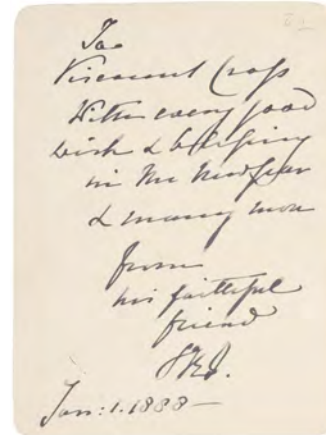 To
Viscount Cross
With every good
wish & blessing
in the New Year
& many more
from
his faithful
friend
VRI.
Jan: 1. 1888 —